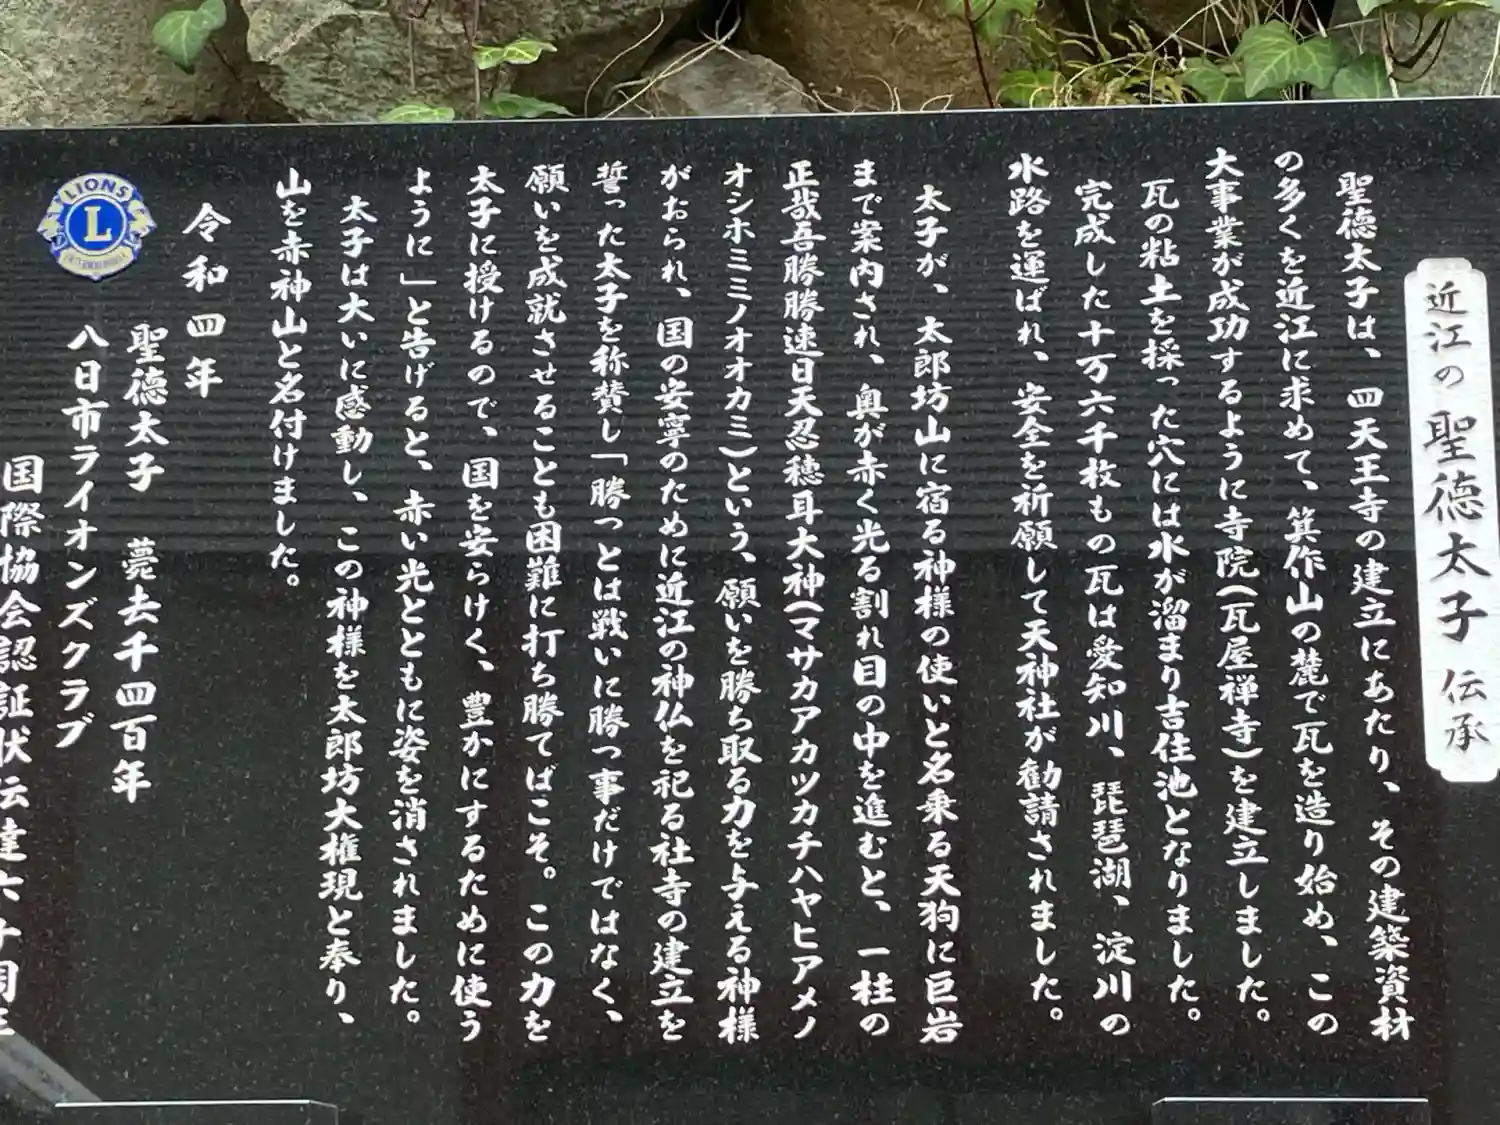 近江の聖徳太子伝承
聖徳太子は、四天王寺の建立にあたり、その建築資材
の多くを近江に求めて、箕作山の麓で瓦を造り始め、この
大事業が成功するように寺院(瓦屋禅寺)を建立しました。
瓦の粘土を採った穴には水が溜まり吉住池となりました。
完成した十万六千枚もの瓦は愛知川、琵琶湖、淀川の
水路を運ばれ、安全を祈願して天神社が勧請されました。
太子が、太郎坊山に宿る神様の使いと名乗る天狗に巨岩
まで案内され、奥が赤く光る割れ目の中を進むと、一柱の
正哉吾勝勝速日天忍穂耳大神(マサカアカツカチハヤヒアメノ
オシホミミノオオカミ)という、願いを勝ち取る力を与える神様
がおられ、国の安寧のために近江の神仏を祀る社寺の建立を
誓った太子を称賛し「勝つとは戦いに勝つ事だけではなく、
願いを成就させることも困難に打ち勝てばこそ。この力を
太子に授けるので、国を安らけく、豊かにするために使う
ように」と告げると、赤い光とともに姿を消されました。
太子は大いに感動し、この神様を太郎坊大権現と奉り、
山を赤神山と名付けました。
令和四年
聖徳太子 薨去千四百年
八日市ライオンズクラブ
国際協会認証状伝達六十周年
LIONS
L